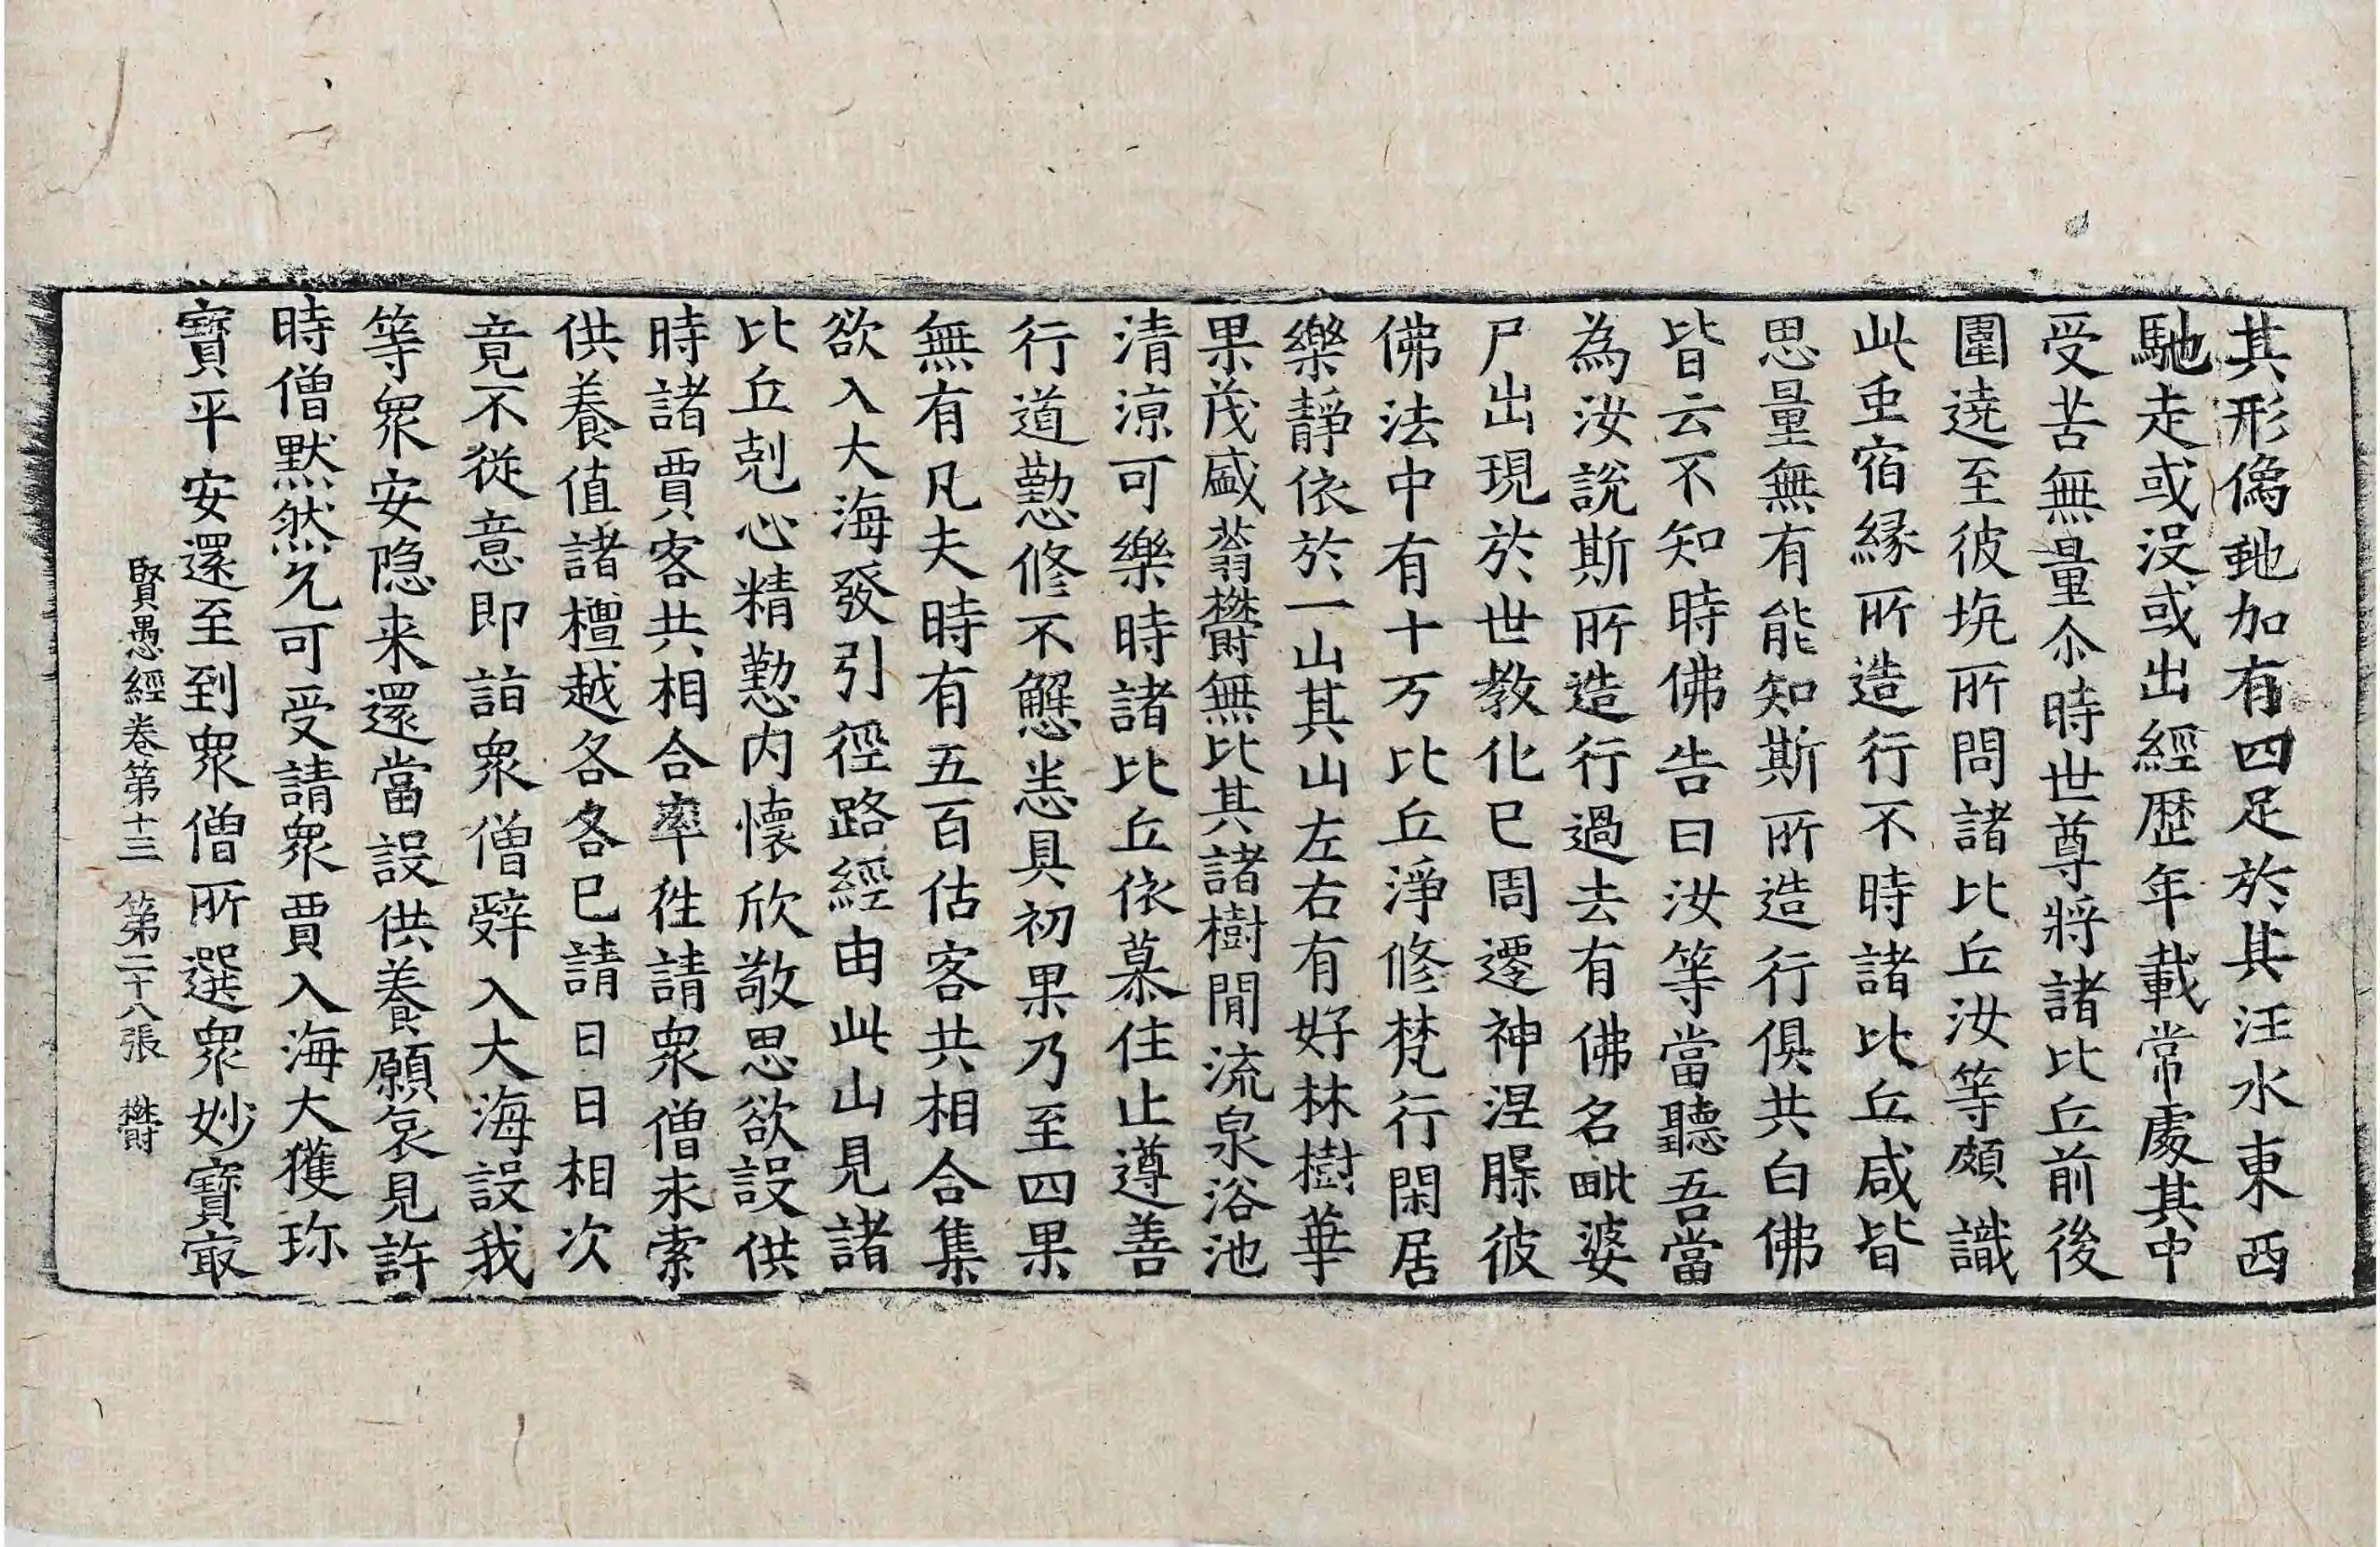 其形像虵加有四足於其汪水東西
馳走或没或出經歷年載常處其中
受苦無量尒時世尊將諸比丘前後
圍遶至彼坑所問諸比丘汝等頗識
此虫宿緣所造行不時諸比丘咸皆
思量無有能知斯所造行俱共白佛
皆云不知時佛告曰汝等當聽吾當
為汝說斯所造行過去有佛名毗婆
尸出現於世教化已周遷神涅䏶彼
佛法中有十万比丘淨修梵行閑居
樂靜依於一山其山左右有好林樹華
果茂盛蓊欝無比其諸樹間流泉浴池
清涼可樂時諸比丘依慕住止遵善
行道懃修不懈悉具初果乃至四果
無有凡夫時有五百估客共相合集
欲入大海發引徑路經由此山見諸
比丘剋心精懃内懷欣敬思欲設供
時諸賈客共相合率徃請衆僧求索
供養值諸檀越各各已請日日相次
竟不從意即詣衆僧辤入大海設我
等衆安隐来還當設供養願哀見許
時僧默然允可受請衆賈入海大獲珎
寶平安還至到衆僧所選衆妙寶㝡
賢愚經卷第十三　第二十八張　欝